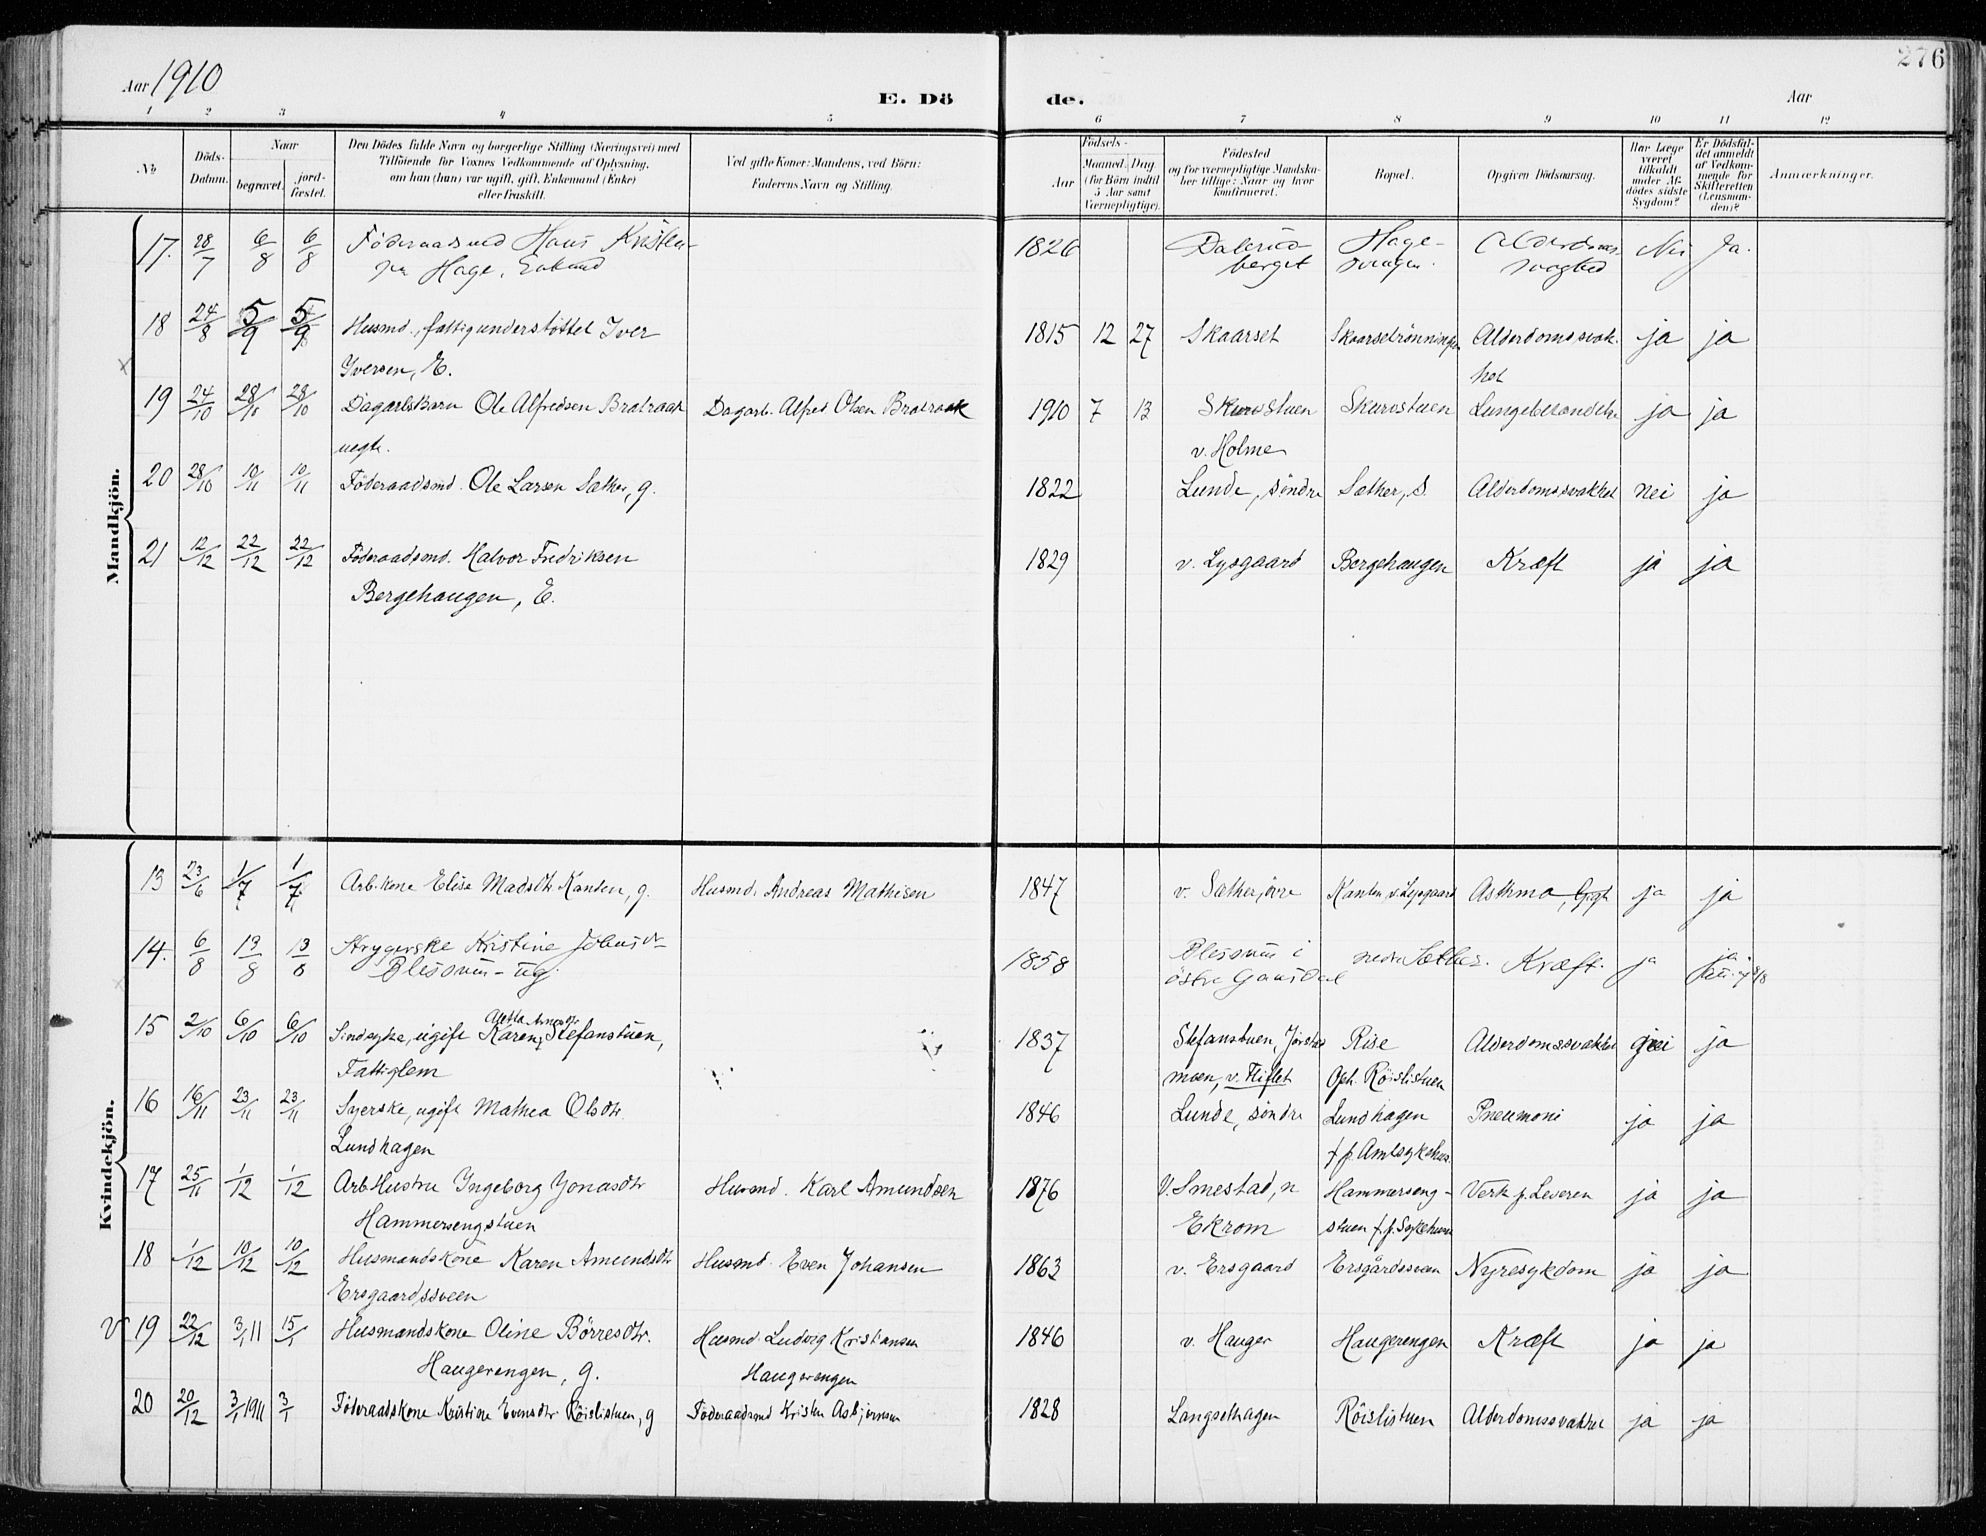 276
Aar 1910
E. Dö de.
Aar
1 2 3 4 5 6 7 8 9 10 11 12
No
Döds-
Datum.
Naar
begravet.
jord-
fæstet.
Den Dödes fulde Navn og borgerlige Stilling (Næringsvei) med
Tilföiende for Voxnes Vedkommende af Oplysning,
om han (hun) var ugift, gift, Enkemand (Enke)
eller fraskilt.
Ved gifte Koner: Mandens, ved Börn:
Faderens Navn og Stilling.
Födsels-
Aar
Maaned.
Dag
(for Börn indtil
5 Aar samt
Værnepligtige).
Födested
og for værnepligtige Mandska-
ber tillige: Naar og hvor
konfirmeret.
Bopæl.
Opgiven Dödsaarsag.
Har Læge
været
tilkaldt
under Af-
dödes sidste
Sygdom?
Er Dödsfal-
det anmeldt
af Vedkom-
mende for
Skifteretten
(Lensman-
den)?
Anmærkninger.
Mandkjön.
17. 28/7 6/8 6/8 Föderaadsmd Hans Kristen-
sen Hage, Enkemd
1826 Hage-
svingen. Alderdoms-
svaghed Nei Ja.
18 24/8 5/9 5/9 Husmd., fattigunderstöttet Iver
Iversen, E.
1815 12 27 Skaarset Skaarsetrönningen Alderdomssvak-
het ja ja
19 24/10 28/10 28/10 Dagarb.barn Ole Alfredsen Bratraak
uegte.
Dagarb. Alfred Olsen Bratraak
1910 7 13 Skurvstuen
v. Holme
Skurvstuen Lungebetændelse ja ja
20 28/10 10/11 10/11 Föderaadsmd. Ole Larsen Sæther, g.
1822 Lunde, söndre Sæther, s. Alderdomssvakhet nei ja
21 12/12 22/12 22/12 Föderaadsmd. Halvor Fredriksen
Bergehaugen, E.
1829 v. Lysgaard Bergehaugen Kræft ja ja
Kvindekjön.
13 23/6 1/7 1/7 Arb.kone Elise Madsdtr Kanten, g.
Husmd. Andreas Mathisen
1847 v. Sæther, övre Kanten, v. Lysgaard Asthma, Gigt ja ja
14. 6/8 13/8 13/8 Strygerske Kristine Johnsdtr
Blessum - ug.
1858 Blessum i
östre Gausdal
nedre Sæther. Kræft. ja ja
15 2/10 6/10 6/10 Sindsyke, ugift Karen Stefanstuen,
Fattiglem
1837 Stefanstuen,
moen, v. Fliflet
Rise
Oph. Röislistuen
Alderdomssvakhet nei ja
16 16/11 23/11 23/11 Syerske, ugift Mathea Olsdtr.
Lundhagen
1846 Lunde, söndre Lundhagen
f. p. Amtsykehus.
Pneumoni ja ja
17 25/11 1/12 1/12 Arb.Hustru Ingeborg Jonasdtr
Hammersengstuen
Husmd. Karl Amundsen
1876 v. Smestad, n
Ekrom
Hammerseng-
stuen f. p. Sykehuset
Verk p. Leveren ja ja
18 1/12 10/12 10/12 Husmandskone Karen Amundsdtr
Ersgaardssveen
Husmd. Even Johansen
1863 v. Ersgaard Ersgårdssveen Nyresykdom ja ja
v 19 22/12 3/1 11 15/1 Husmandskone Oline Börresdtr.
Haugerengen, g.
Husmd. Ludvig Kristiansen
Haugerengen
1846 v. Hauger Haugerengen Kræft ja ja
20 20/12 3/1 1911 3/1 Föderaadskone Kristine Evensdtr Röislistuen, g
Föderaadsmd Kristen Asbjörnsen
1828 Langsethagen Röislistuen Alderdomssvakhet ja ja